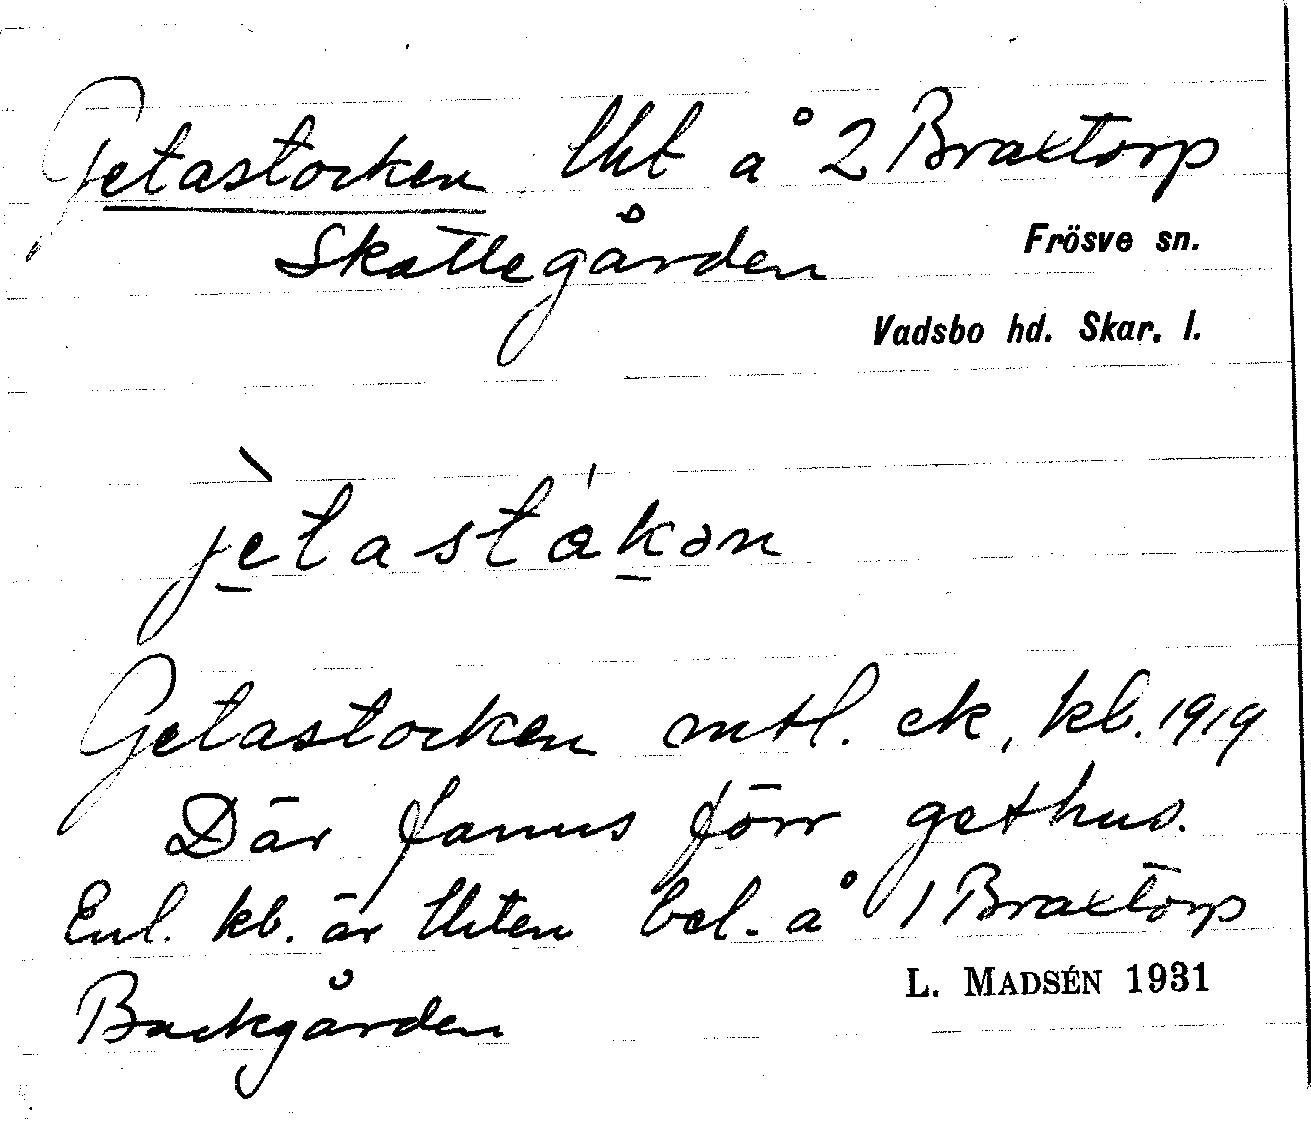 Getastocken lht å 2 Braxtorp
Skattegården
Frösve sn.
Vadsbo hd. Skar. l.
jètastákən
Getastocken mtl. ck, kb. 1919
Där fanns förr gethus.
Enl. kb. är lhten bel. å 1 Braxtorp
Backgården
L. MADSÉN 1931